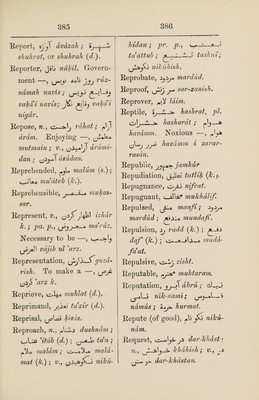 385
Report, آوازه ávázah; شهرت
shuhrat, or shuhrah (d.).
Reporter, ناقل náḳil. Govern-
ment —, روز نامه نويس rúz-
námah navís; وقايع نويس
vaḳá'i navís; وقايع نگار vaḳá'i
nigár.
Repose, n., راحت ráhat; آرام
árám. Enjoying —, مطمئن
mutmain; v., آراميدن árámí-
dan; آسودن ásúdan.
Reprehended, ملوم malúm (s.);
معاتب mu'áteb (k.).
Reprehensible, مخصر
Represent, v., اظهار كردن izhár
k.; pa. p., معروض ma'rúz.
Necessary to be —, واجب
العرض vájib ul 'arz.
Representation, گذارش guzá-
rish. To make a —, عرض
كردن 'arz k.
Reprieve, مهلت muhlat (d.).
Reprimand, تعزير ta'zír (d.).
Reprisal, قصاص
Reproach, n., دشنام dushnám;
عتاب 'itáb (d.); طعن ta'n;
ملام malám; ملامت malá-
mat (k.); v., نكوهيدن nikú-
386
hídan; pr. p.,
ta'attub; تشنع tashnú';
نكوهش nikúhish.
Reprobate, مردود mardúd.
Reproof, سرزنش sar-zanish.
Reprover, لايم láim.
Reptile, حشرة hashrat, pl.
حشرات hasharát; هوام
havámm. Noxious —, هوام
ضرر رسان havámm i zarar-
rasán.
Republic, جمهور jamhúr
Repudiation, تطليق tatlíḳ (k.).
Repugnance, نفرت nifrat.
Repugnant, مخالف mukhálif.
Repulsed, منفي manfí; مردود
mardúd; مندفع mundafi'.
Repulsion, رد radd (k.); دفع
daf' (k.); مدافعت mudá-
fa'at.
Repulsive, زشت zisht.
Reputable, محترم muhtaram.
Reputation, آبرو ábrú; نيك
نامى nik-namí; ناموس
námús; حرمت hurmat.
Repute (of good), نكو نام nikú-
nám.
Request, در خواست dar-khást;
n., خواهش kháhish; v., در
خواستن dar-khástan.